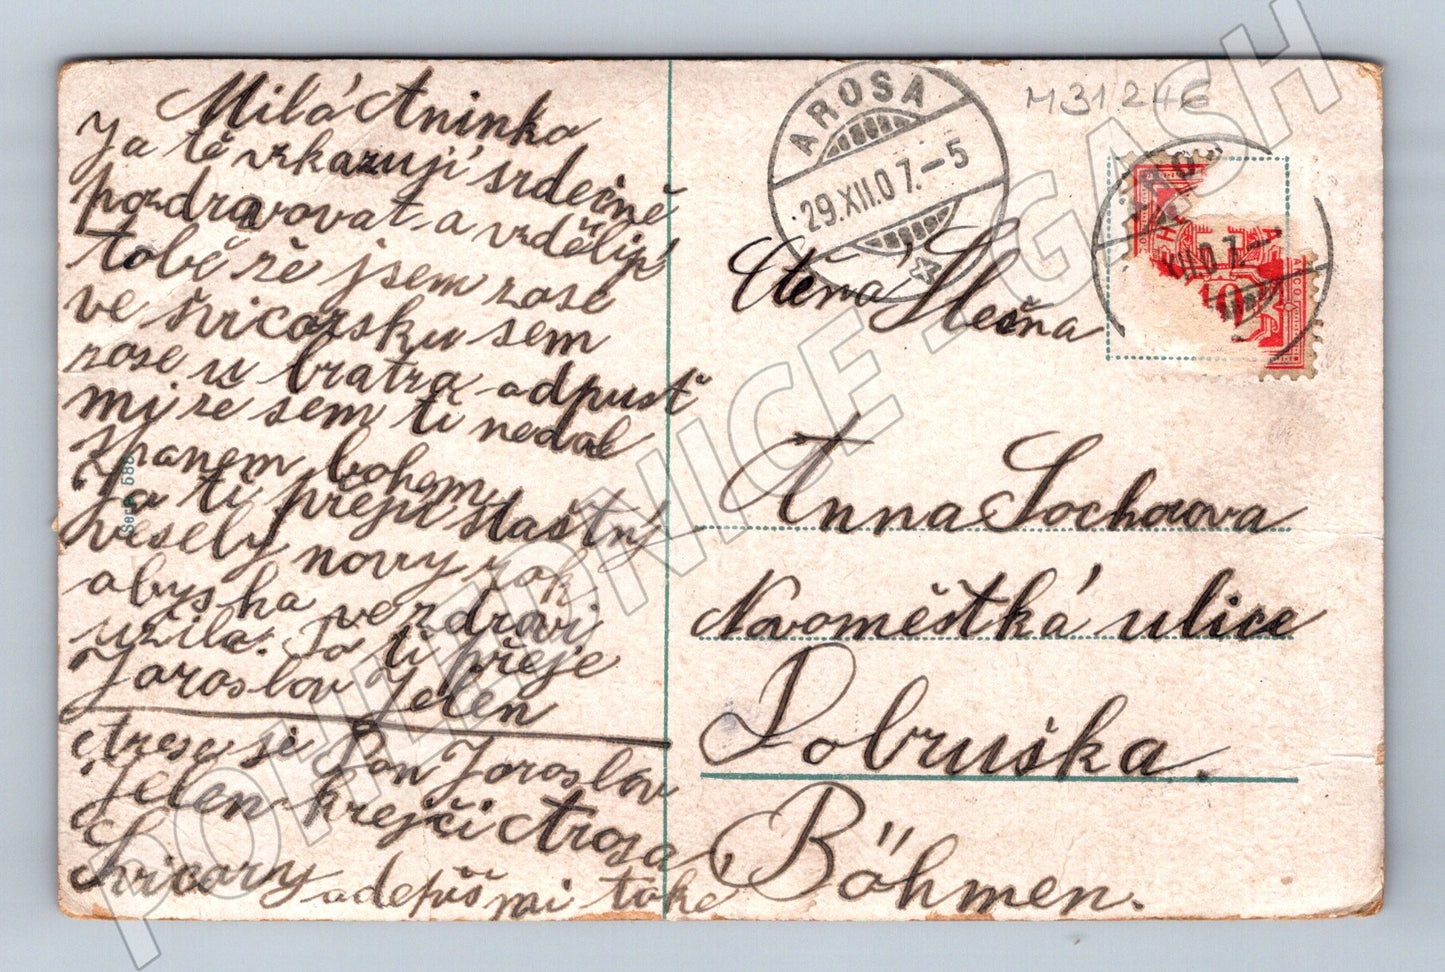 Milá Aninko
Ja tě vzkazují srdečně
pozdravovat a vzdělip
tobě že jsem zase
ve švicarsku sem
zase u bratra odpusť
mi že sem ti nedal
z panem bohem
Ja ti přeji štastny
vesely novy rok
abys ho ve zdravi
užila. To ti přeje
Jaroslav Jelen
atresa je Pan Jaroslav
Jelen krejči Arosa
Švicary adepiš mi take
Serie 588
AROSA
29.XII.07.-5
M31246
XII.07.-
10
Ctěna Slečna
Anna Sochorova
Novoměstká ulice
Dobruška.
Böhmen.
POHLEDNICE - GASH